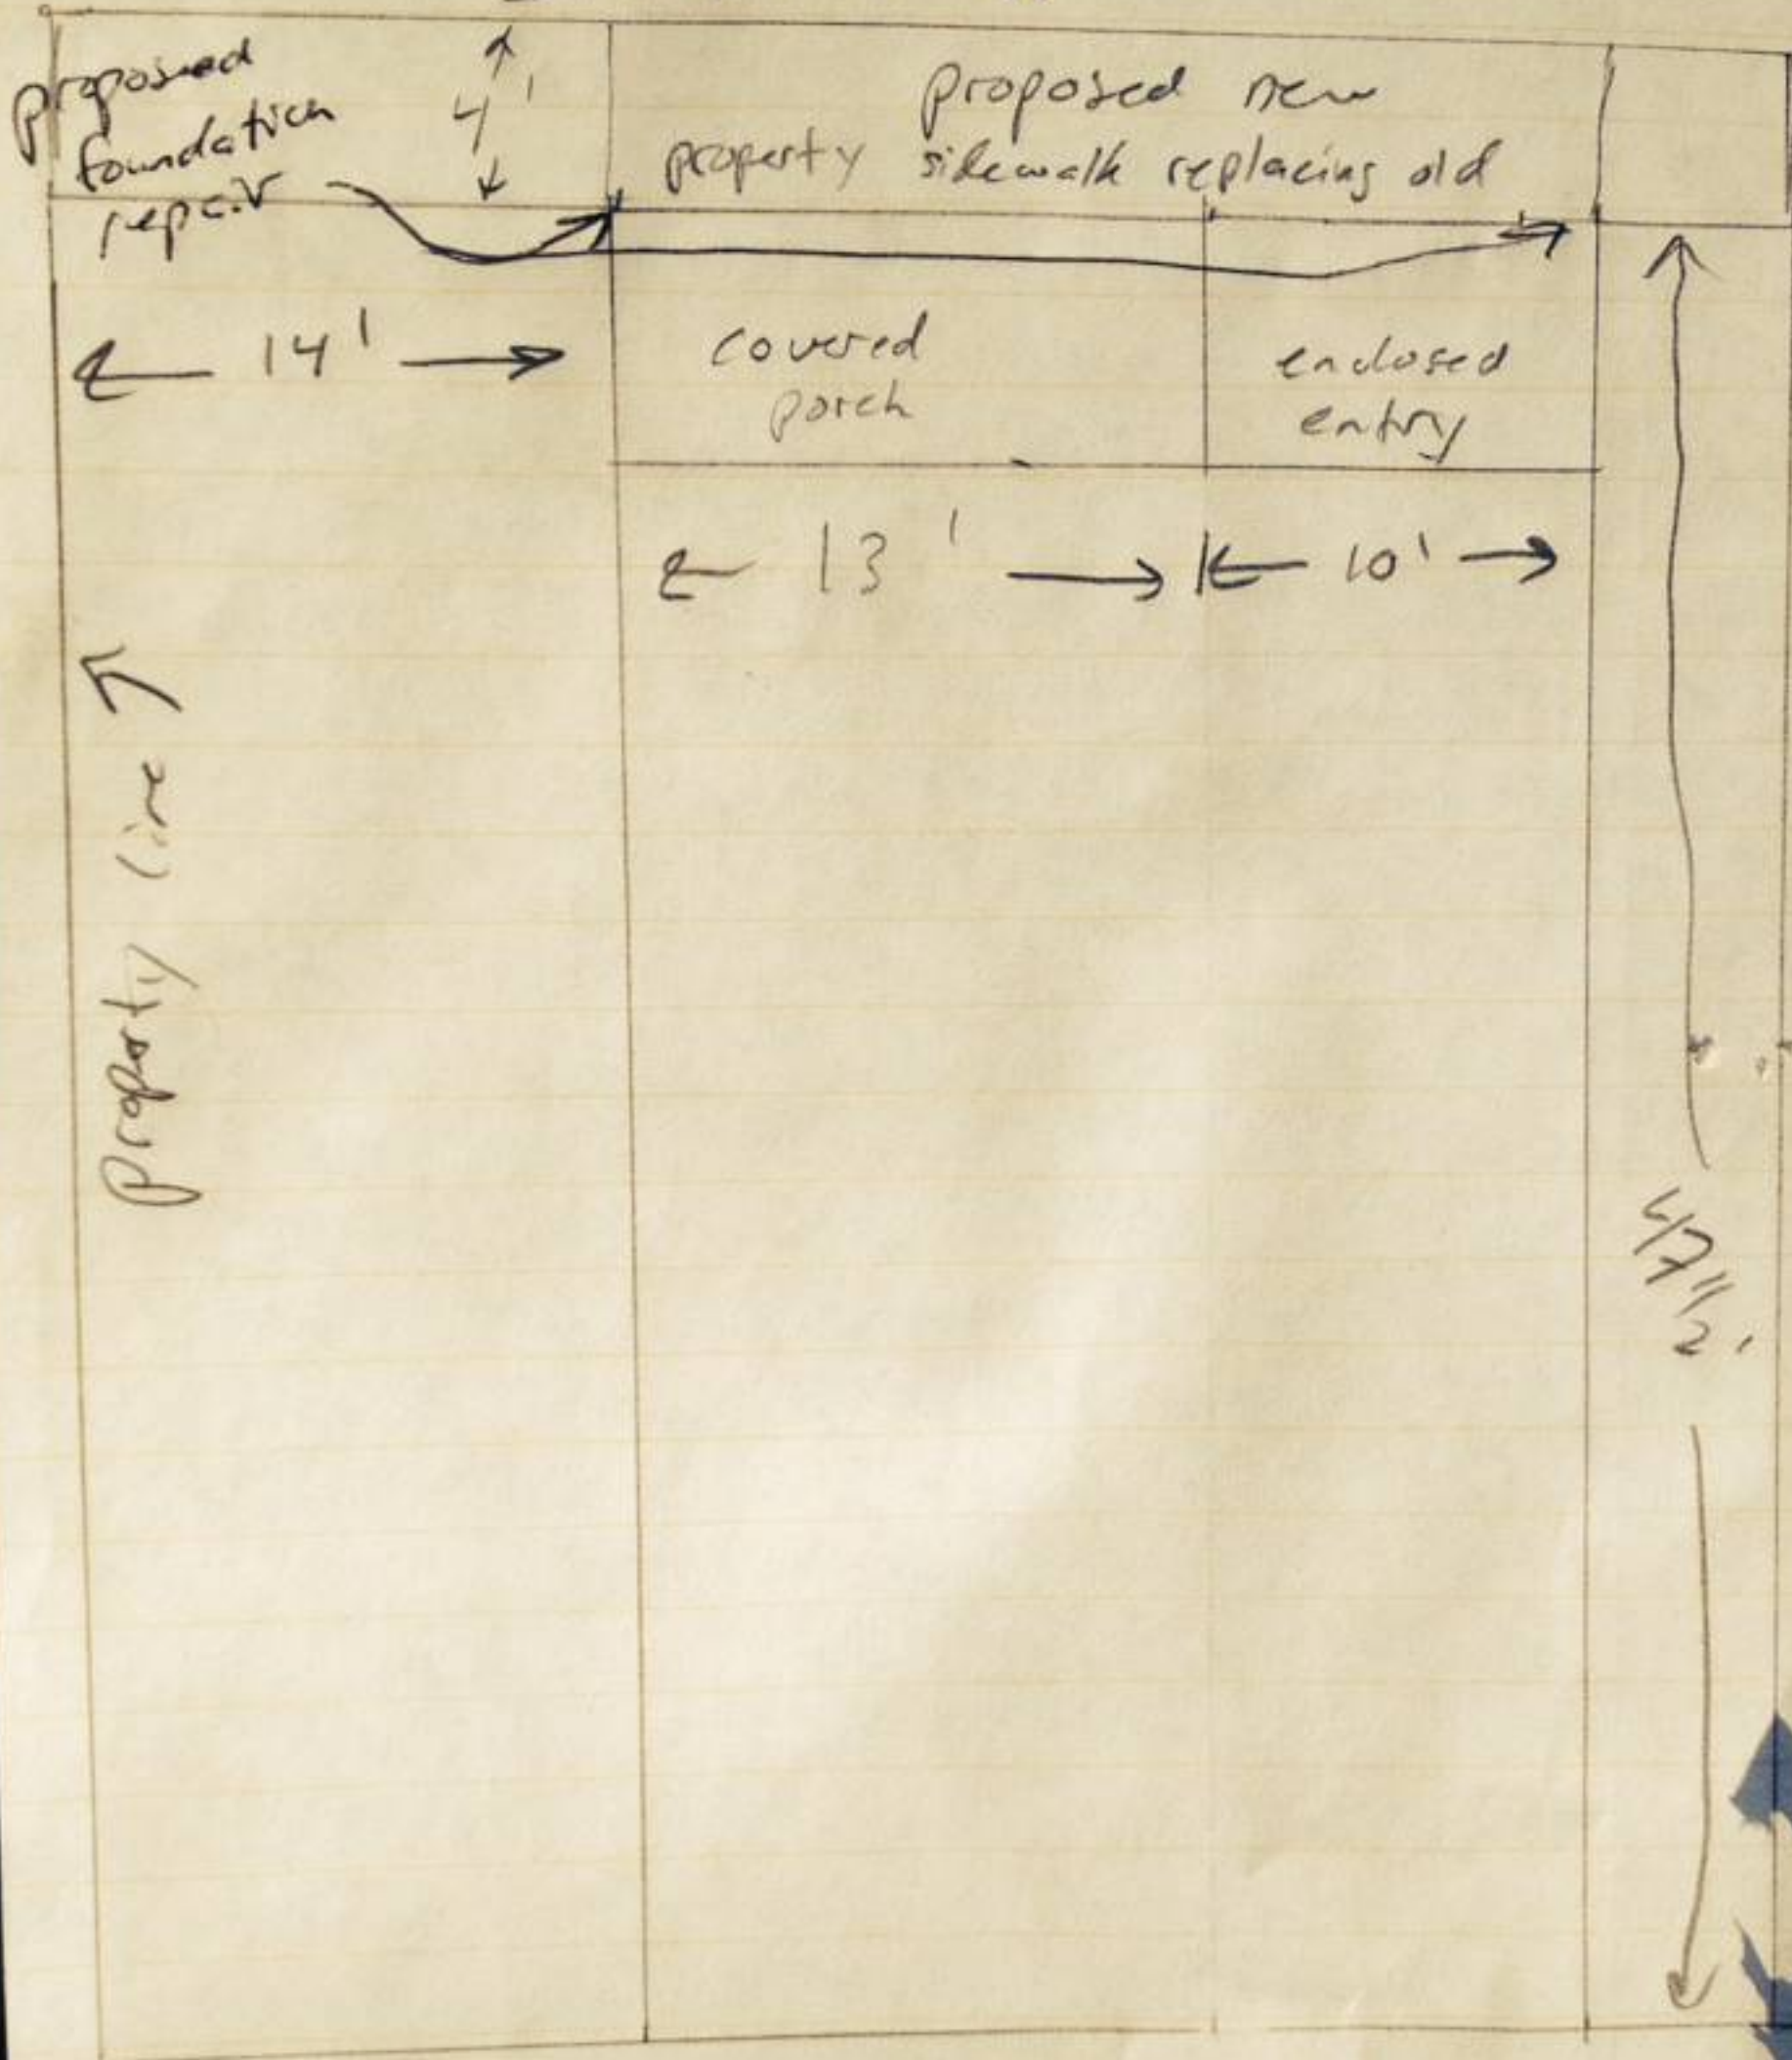 proposed
foundation
repair
4'
proposed new
property sidewalk replacing old
14'
covered
porch
enclosed
entry
13'
10'
property line
47 1/2'